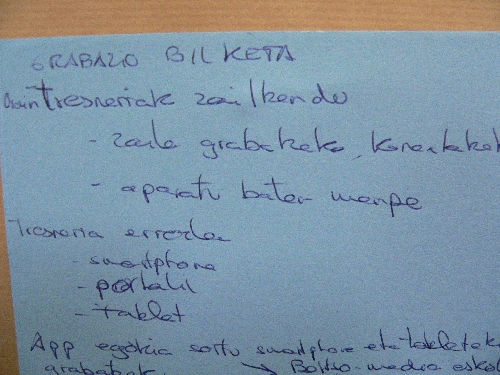 GRABAZIO BILKETA
Orain tresneriak zailkendu
- zaila grabatzeko, konektatzek
- aparatu baten menpe
Tresneria erreza
- smartphone
- portatil
- tablet
App egokia sortu smartphone eta tabletak
grabatzek → Boltso-media eskol